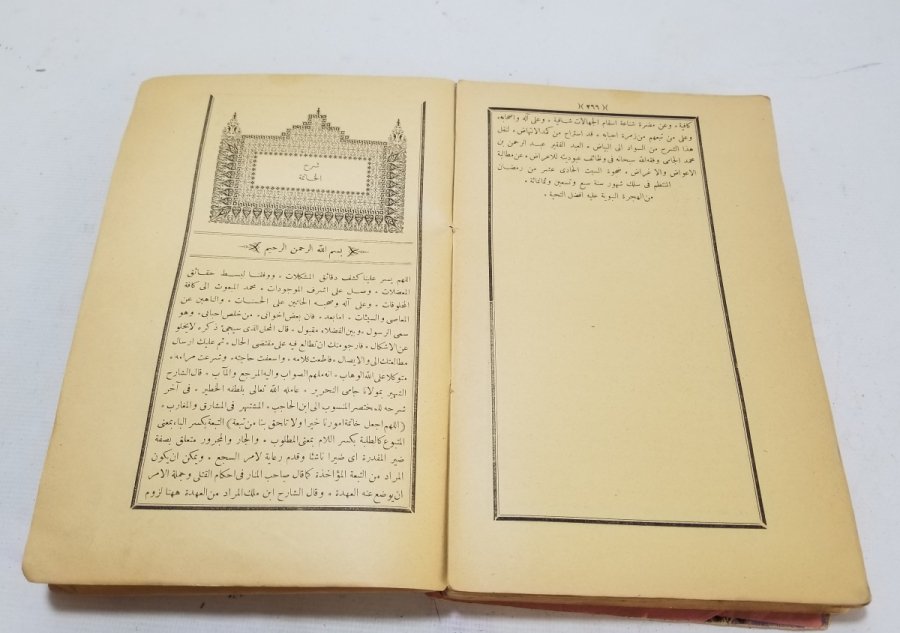 )( ٢٦٦ )(
كافية ٭ وعن مضرة شناعة اسقام الجهالات شافية ٭ وعلى آله واصحابه
وعلى من تبعهم من زمرة احبابه ٭ قد استراح من كد الانتهاض ٭ لنقل
هذا الشرح من السواد الى البياض ٭ العبد الفقير عبد الرحمن بن
محمد الجامى وفقه الله سبحانه فى وظائف عبوديته للاعراض ٭ عن مطالبة
الاعواض والاغراض ٭ ضحوة السبت الحادى عشر من رمضان
المنتظم فى سلك شهور سنة سبع وتسعين وثمانمائة ٭
من الهجرة النبوية عليه افضل التحية ٭
شرح
الخاتمة
بسم الله الرحمن الرحيم
اللهم يسر علينا كشف دقائق المشكلات ٭ ووفقنا لبسط حقائق
المعضلات ٭ وصل على اشرف الموجودات ٭ محمد المبعوث الى كافة
المخلوقات ٭ وعلى آله وصحبه الحاثين على الحسنات ٭ والناهين عن
المعاصى والسيئات ٭ اما بعد ٭ فان بعض اخوانى ٭ من خلص احبابى ٭ وهو
سمى الرسول ٭ وبين الفضلاء مقبول ٭ قال المحل الذى سيجئ ذكره لا يخلو
عن الاشكال ٭ فارجو منك ان تطالع فيه على مقتضى الحال ٭ ثم عليك ارسال
مطالعتك الى والايصال ٭ فاطعت كلامه ٭ واسعفت حاجته ٭ وشرعت مرامه ٭
متوكلا على الله الوهاب ٭ انه ملهم الصواب واليه المرجع والمآب ٭ قال الشارح
الشهير بمولانا جامى النحرير ٭ عامله الله تعالى بلطفه الخطير ٭ فى آخر
شرحه للمختصر المنسوب الى ابن الحاجب ٭ المشتهر فى المشارق والمغارب ٭
(اللهم اجعل خاتمة امورنا خيرا ولا تلحق بنا من تبعة) التبعة بكسر الباء بمعنى
المتبوع كالطلبة بكسر اللام بمعنى المطلوب ٭ والجار والمجرور متعلق بصفة
ضير المقدرة اى ضيرا ناشئا وقدم رعاية لامر السجع ٭ ويمكن ان يكون
المراد من التبعة المؤاخذة كما قال صاحب المنار فى احكام القتلى وجملة الامر
ان يوضع عنه العهدة ٭ وقال الشارح ابن ملك المراد من العهدة ههنا لزوم